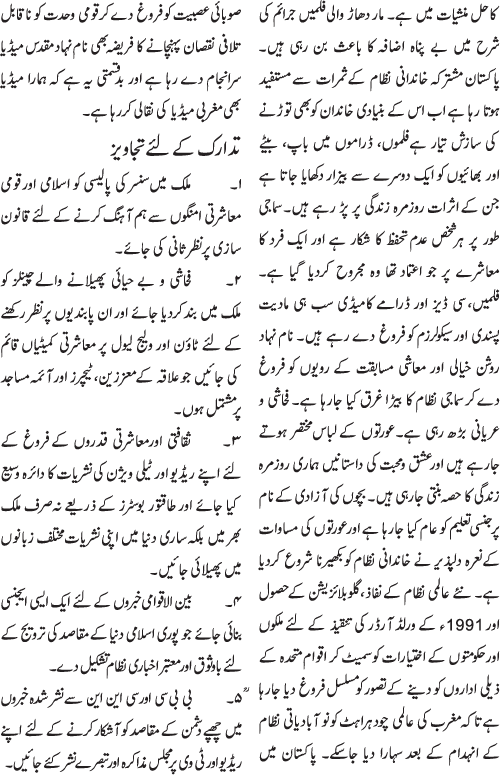 کا حل منشیات میں ہے۔ مار دھاڑ والی فلمیں جرائم کی
شرح میں بے پناہ اضافہ کا باعث بن رہی ہیں۔
پاکستان مشترکہ خاندانی نظام کے ثمرات سے مستفید
ہوتا رہا ہے اب اس کے بنیادی خاندان کو بھی توڑنے
کی سازش تیار ہے فلموں، ڈراموں میں باپ، بیٹے
اور بھائیوں کو ایک دوسرے سے بیزار دیکھایا جاتا ہے
جن کے اثرات روزمرہ زندگی پر پڑ رہے ہیں۔ سماجی
طور پر ہر شخص عدم تحفظ کا شکار ہے اور ایک فرد کا
معاشرے پر جو اعتماد تھا وہ مجروح کردیا گیا ہے۔
فلمیں، سی ڈیز اور ڈرامے کامیڈی سب ہی مادیت
پسندی اور سیکولرزم کو فروغ دے رہے ہیں۔ نام نہاد
روشن خیالی اور معاشی مسابقت کے رویوں کو فروغ
دے کر سماجی نظام کا بیڑا غرق کیا جارہا ہے۔ فحاشی و
عریانی بڑھ رہی ہے۔ عورتوں کے لباس مختصر ہوتے
جارہے ہیں اور عشق و محبت کی داستانیں ہماری روزمرہ
زندگی کا حصہ بنتی جارہی ہیں۔ بچوں کی آزادی کے نام
پر جنسی تعلیم کو عام کیا جارہا ہے اور عورتوں کی مساوات
کے نعرہ دلپذیر نے خاندانی نظام کو بکھیرنا شروع کردیا
ہے۔ نئے عالمی نظام کے نفاذ، گلوبلائزیشن کے حصول
اور 1991ء کے ورلڈ آرڈر کی تنفیذ کے لئے ملکوں
اور حکومتوں کے اختیارات کو سمیٹ کر اقوام متحدہ کے
ذیلی اداروں کو دینے کے تصور کو مسلسل فروغ دیا جارہا
ہے تاکہ مغرب کی عالمی چودہراہٹ کو نوآبادیاتی نظام
کے انہدام کے بعد سہارا دیا جاسکے۔ پاکستان میں
صوبائی عصبیت کو فروغ دے کر قومی وحدت کو ناقابل
تلافی نقصان پہنچانے کا فریضہ بھی نام نہاد مقدس میڈیا
سرانجام دے رہا ہے اور بدقسمتی یہ ہے کہ ہمارا میڈیا
بھی مغربی میڈیا کی نقالی کر رہا ہے۔
تدارک کے لئے تجاویز
۱۔ ملک میں سنسر کی پالیسی کو اسلامی اور قومی
معاشرتی امنگوں سے ہم آہنگ کرنے کے لئے قانون
سازی پر نظر ثانی کی جائے۔
۲۔ فحاشی و بے حیائی پھیلانے والے چینلز کو
ملک میں بند کردیا جائے اور ان پابندیوں پر نظر رکھنے
کے لئے ٹاؤن اور ولیج لیول پر معاشرتی کمیٹیاں قائم
کی جائیں جو علاقہ کے معززین، ٹیچرز اور آئمہ مساجد
پر مشتمل ہوں۔
۳۔ ثقافتی اور معاشرتی قدروں کے فروغ کے
لئے اپنے ریڈیو اور ٹیلی ویژن کی نشریات کا دائرہ وسیع
کیا جائے اور طاقتور بوسٹرز کے ذریعے نہ صرف ملک
بھر میں بلکہ ساری دنیا میں اپنی نشریات مختلف زبانوں
میں پھیلائی جائیں۔
۴۔ بین الاقوامی خبروں کے لئے ایک ایسی ایجنسی
بنائی جائے جو پوری اسلامی دنیا کے مقاصد کی ترویج کے
لئے باوثوق اور معتبر اخباری نظام تشکیل دے۔
۵۔ بی بی سی اور سی این این سے نشر شدہ خبروں
میں چھپے دشمن کے مقاصد کو آشکار کرنے کے لئے اپنے
ریڈیو اور ٹی وی پر مجلس مذاکرہ اور تبصرے نشر کئے جائیں۔